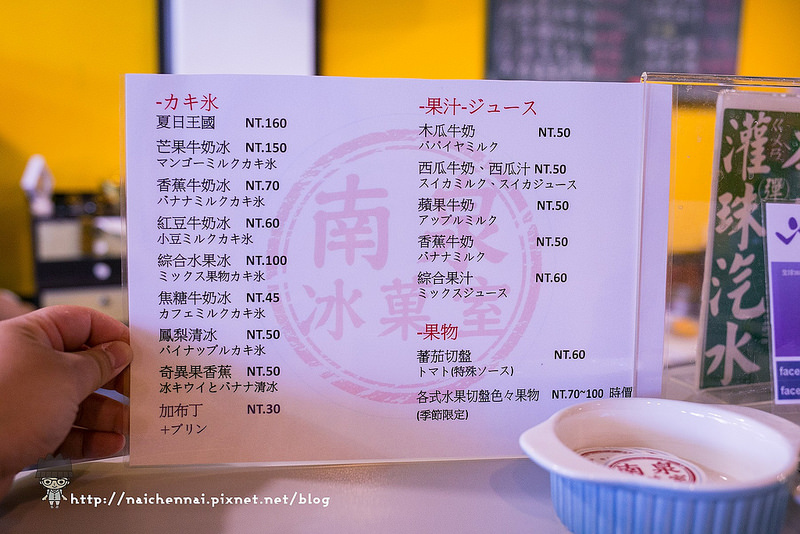 -カキ氷
夏日王國 NT.160
芒果牛奶冰 NT.150
マンゴーミルクカキ氷
香蕉牛奶冰 NT.70
バナナミルクカキ氷
紅豆牛奶冰 NT.60
小豆ミルクカキ氷
綜合水果冰 NT.100
ミックス果物カキ氷
焦糖牛奶冰 NT.45
カフェミルクカキ氷
鳳梨清冰 NT.50
パイナップルカキ氷
奇異果香蕉 NT.50
冰キウイとバナナ清冰
加布丁 NT.30
+プリン
-果汁-ジュース
木瓜牛奶 NT.50
パパイヤミルク
西瓜牛奶、西瓜汁 NT.50
スイカミルク、スイカジュース
蘋果牛奶 NT.50
アップルミルク
香蕉牛奶 NT.50
バナナミルク
綜合果汁 NT.60
ミックスジュース
-果物
蕃茄切盤 NT.60
トマト(特殊ソース)
各式水果切盤色々果物 NT.70~100 時價
(季節限定)
南泉
冰菓室
灌珠汽水
face
face
南泉
http://naichennai.pixnet.net/blog